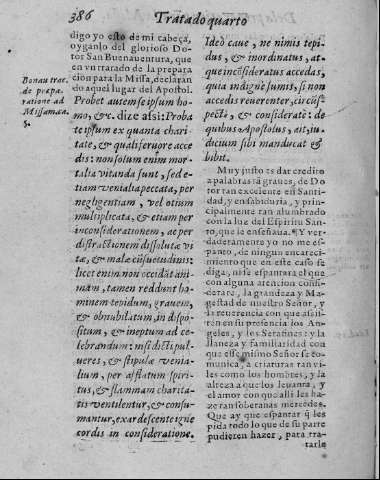 386
Tratado quarto
digo yo esto de mi cabeça,
oyganlo del glorioso Do-
tor San Buenauentura, que
en vn tratado de la prepara
cion para la Missa, declaran
do aquel lugar del Apostol.
Bonau trac.
de præpa-
ratione ad
Missam ca.
5.
Probet autem se ipsum ho-
mo, &c. dize assi: Proba
te ipsum ex quanta chari
tate, & quali feruore acce
dis: non solum enim mor-
talia vitanda sunt, sed e-
tiam venialia peccata, per
negligentiam, vel otium
multiplicata, & etiam per
inconsiderationem, ac per
distractionem dissolutæ vi
tæ, & malæ cõsuetudinis:
licet enim non occidãt ani-
mam, tamen reddunt ho-
minem tepidum, grauem,
& obnubilatum, indispo-
situm, & ineptum ad ce-
lebrandum: nisi dicti pul-
ueres, & stipulæ venia-
lium, per afflatum spiri-
tus, & flammam charita-
tis ventilentur, & consu-
mantur, exardescente igne
cordis in consideratione.
Ideò caue, ne nimis tepi-
dus, & inordinatus, at-
que incõsideratus accedas,
quia indignè sumis, si non
accedis reuerenter, circũs-
pectè, & consideratè: de
quibus Apostolus, ait, iu-
dicium sibi manducat &
bibit.
Muy justo es dar credito
a palabras tã graues, de Do-
tor tan excelente en Santi-
dad, y en sabiduria, y prin-
cipalmente tan alumbrado
con la luz del Espiritu San-
to, que le enseñaua. ¶ Y ver-
daderamente yo no me es-
panto, de ningun encareci-
miento que en este caso se
diga, ni se espantara el que
con alguna atencion consi-
derare, la grandeza y Ma-
gestad de nuestro Señor, y
la reuerencia con que assis-
ten en su presencia los An-
geles, y los Serafines: y la
llaneza y familiaridad con
que esse mismo Señor se co-
munica, a criaturas tan vi-
les como los hombres, y la
alteza a que los leuanta, y
el amor con que alli les ha-
ze tan soberanas mercedes.
Que ay que espantar q̃ les
pida todo lo que de su parte
pudieren hazer, para tra-
tarle